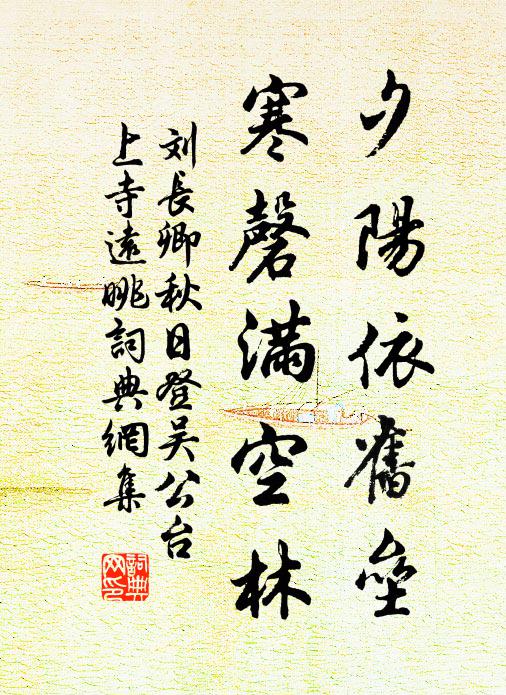 夕陽依舊壘
寒磬滿空林
刘長卿秋日登吴公台
上寺遠眺詞典網集
詞典
网印